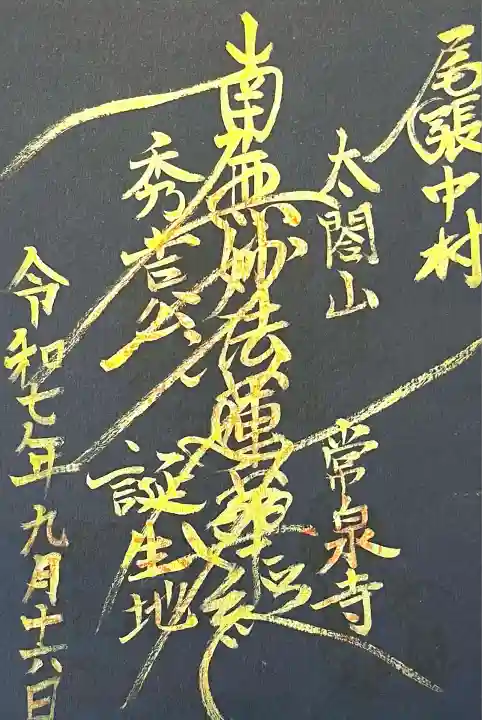 尾張中村
太閤山
常泉寺
南無妙法蓮華経
秀吉公
誕生地
令和七年九月十六日